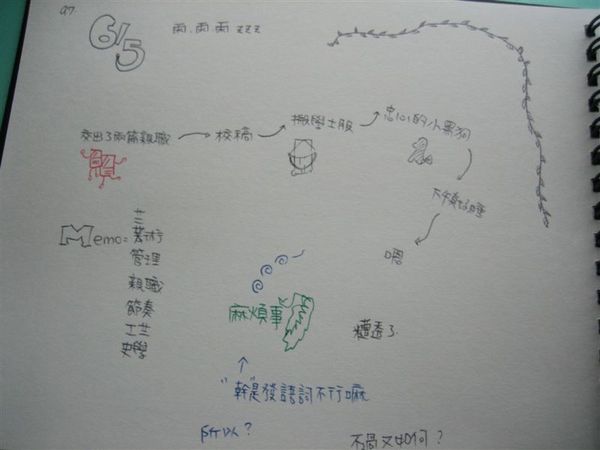 97.
6/5
雨.雨雨 zzz
交出了兩篇親職
校稿
搬學士服
忠心的小黑狗
下午較好睡
嗯
Memo:
藝術
管理
親職
節奏
工芒
史學
麻煩事
糟透了.
"幹"是發語詞不行嘛
所以?
不過又如何?